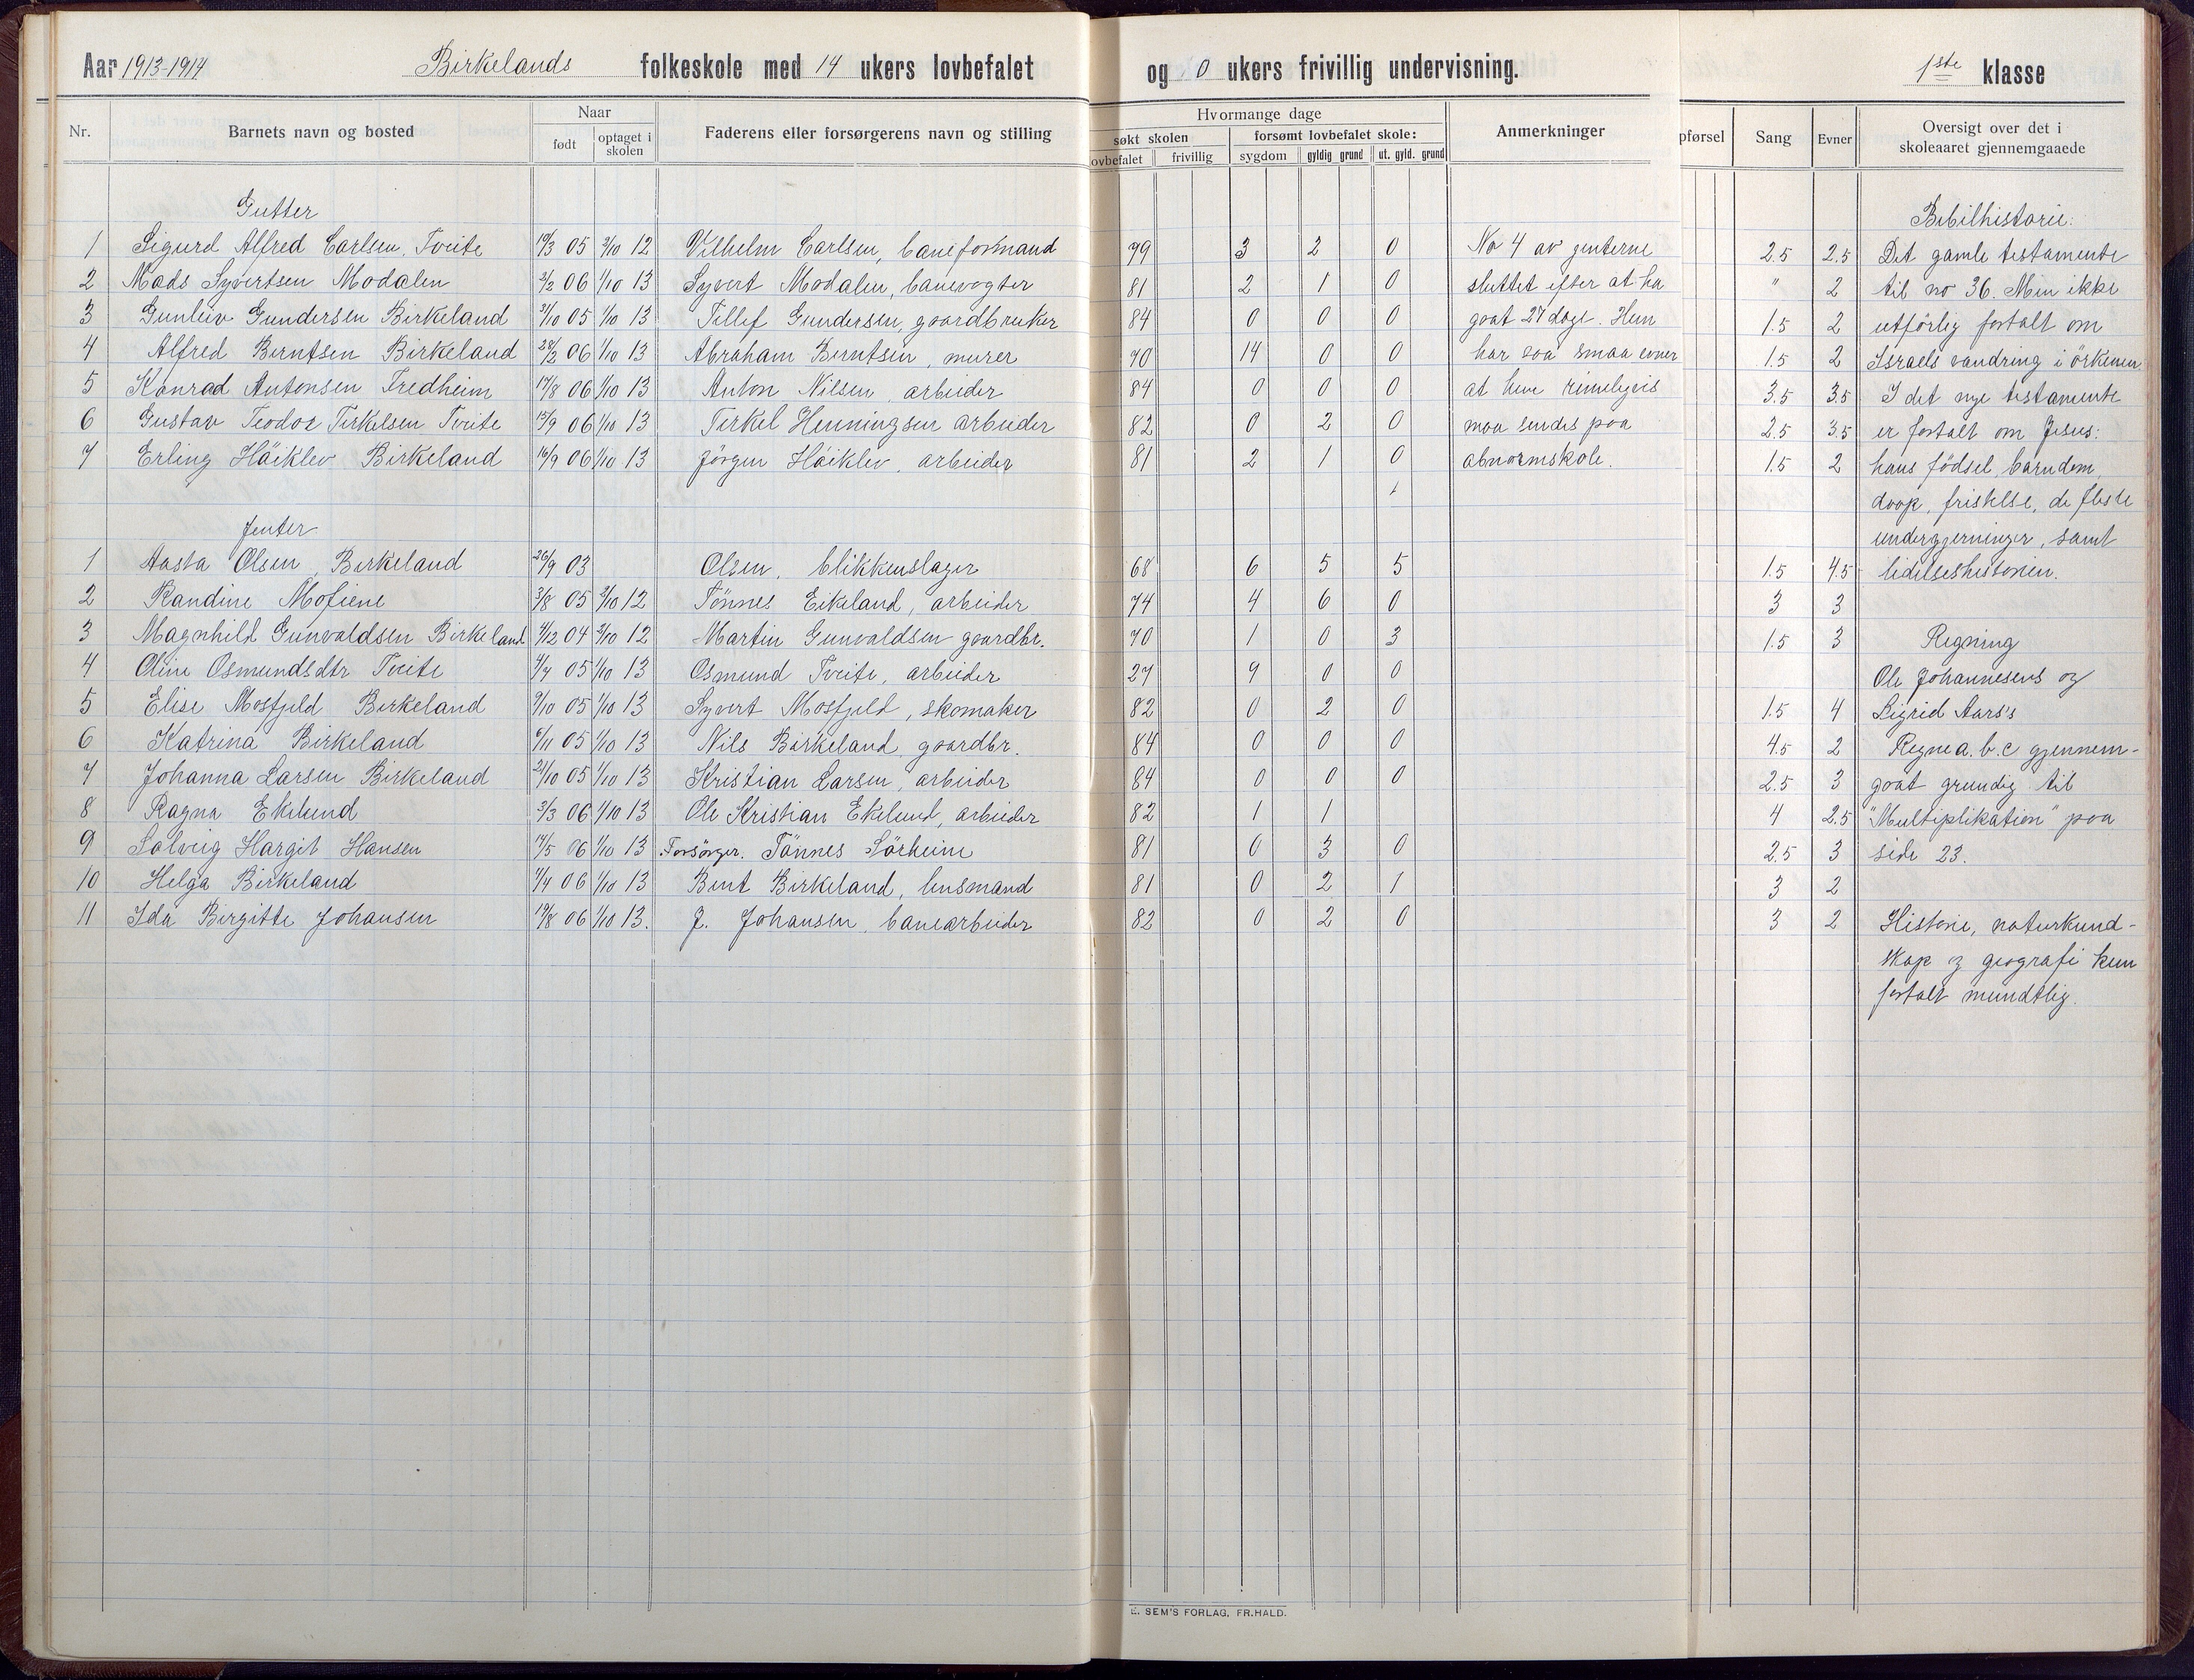 Aar 1913-1914 Birkelands folkeskole med 14 ukers lovbefalet og 0 ukers frivillig undervisning. 1ste klasse
Nr. Barnets navn og bosted Naar født optaget i skolen Faderens eller forsørgerens navn og stilling
Hvormange dage
søkt skolen forsømt lovbefalet skole: Anmerkninger
ovbefalet frivillig sygdom gyldig grund ut. gyld. grund
pførsel Sang Evner Oversigt over det i skoleaaret gjennemgaaede
Gutter
1 Sigurd Alfred Carlsen, Tveite 19/3 05 3/10 12 Vilhelm Carlsen, baneformand
2 Mads Syvertsen Modalen 3/2 06 1/10 13 Syvert Modalen, banevogter
3 Gunleiv Gundersen Birkeland 31/10 05 1/10 13 Tellef Gundersen, gaardbruker
4 Alfred Berntsen Birkeland 28/2 06 1/10 13 Abraham Berntsen, murer
5 Konrad Antonsen Fredheim 17/8 06 1/10 13 Anton Nilsen, arbeider
6 Gustav Teodor Terkelsen Tveite 15/9 06 1/10 13 Terkel Henningsen arbeider
7 Erling Höiklev Birkeland 16/9 06 1/10 13 Jörgen Höiklev, arbeider
Jenter
1 Aasta Olsen, Birkeland 26/9 03 Olsen, blikkenslager
2 Kandine Mofiene 3/8 05 3/10 12 Tönnes Eikeland, arbeider
3 Magnhild Gunvaldsen Birkeland 4/12 04 3/10 12 Martin Gunvaldsen gaardbr.
4 Oline Osmundsdtr Tveite 4/7 05 1/10 13 Osmund Tveite, arbeider
5 Elise Mosfjeld Birkeland 9/10 05 1/10 13 Syvert Mosfjeld, skomaker
6 Katrina Birkeland 6/11 05 1/10 13 Nils Birkeland, gaardbr.
7 Johanna Larsen Birkeland 21/10 05 1/10 13 Kristian Larsen, arbeider
8 Ragna Ekelund 3/3 06 1/10 13 Ole Kristian Ekelund, arbeider
9 Solveig Hargit Hansen 14/5 06 1/10 13 Forsörger. Tönnes Sörheim
10 Helga Birkeland 7/7 06 1/10 13 Bent Birkeland, lensmand
11 Ida Birgitte Johansen 19/8 06 1/10 13. J. Johansen, banearbeider
79 3 2 0
81 2 1 0
84 0 0 0
70 14 0 0
84 0 0 0
82 0 2 0
81 2 1 0
68 6 5 5
74 4 6 0
70 1 0 3
27 9 0 0
82 0 2 0
84 0 0 0
84 0 0 0
82 1 1
81 0 3 0
81 0 2 1
82 0 2 0
No 4 av jenterne
sluttet efter at ha
gaat 27 dage. Hun
har saa smaa evner
at hun rimeligvis
maa sendes paa
abnormskole.
2.5 2.5
" 2
1.5 2
1.5 2
3.5 3.5
2.5 3.5
1.5 2
1.5 4.5
3 3
1.5 3
1.5 4
4.5 2
2.5 3
4 2.5
2.5 3
3 2
3 2
Bibilhistorie:
Det gamle testamente
til no 36. Men ikke
utförlig fortalt om
Israels vandring i örkenen.
I det nye testamente
er fortalt om Jesus:
hans födsel, barndom,
daap, fristelse, de fleste
undergjerninger, samt
lidelseshistorien.
Regning
Ole Johannesens og
Sigrid Aars's
Regne a.b.c gjennem-
gaat grundig til
"Multiplikation" paa
side 23.
Historie, naturkund-
skap og geografi kun
fortalt mundtlig.
E. SEM'S FORLAG, FR.HALD.